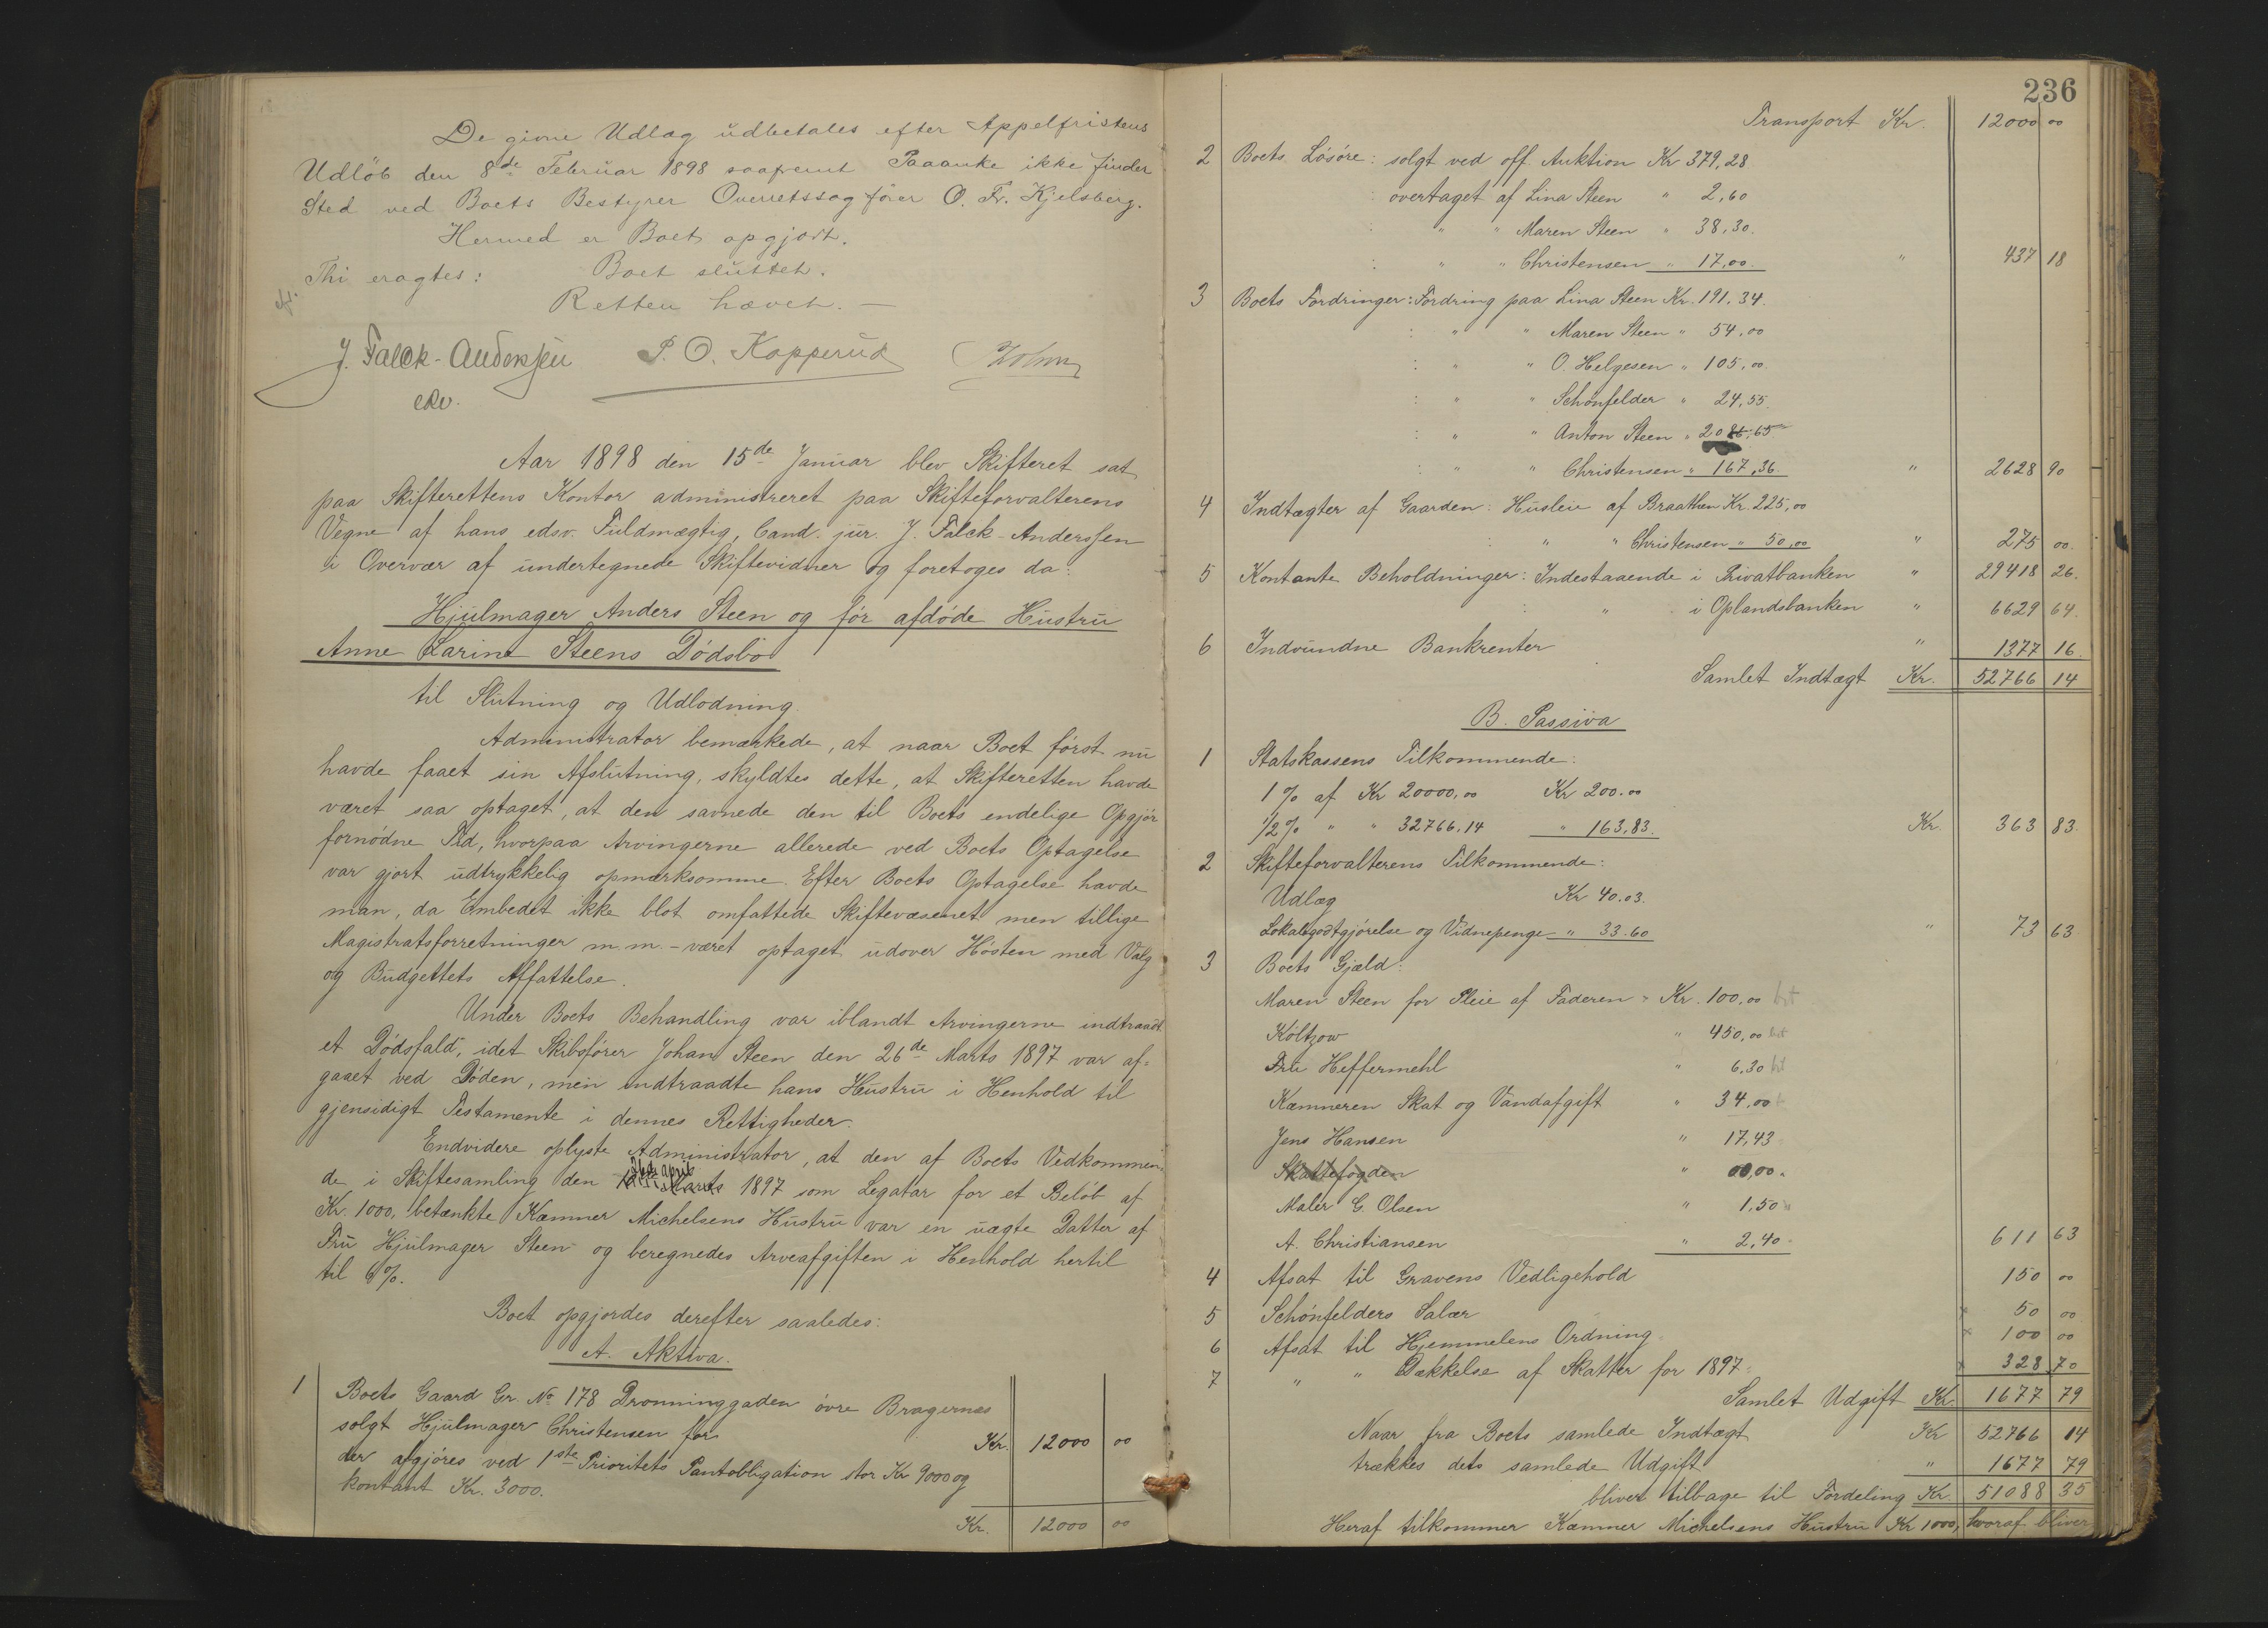 De givne Udlæg udbetales efter Appelfristens
Udløb den 8de Februar 1898 saafremt Paaanke ikke finder
Sted ved Boets Bestyrer Overretssagfører O. Fr. Kjelsberg.
Hermed er Boet opgjort.
Thi eragtes: Boet sluttet.
Retten hævet. —
J. Falck-Anderssen P. O. Kopperud
Aar 1898 den 15de Januar blev Skifteret sat
paa Skifterettens Kontor administreret paa Skifteforvalterens
Vegne af hans edsv. Fuldmægtig, Cand. jur. J. Falck-Anderssen
i Overvær af undertegnede Skiftevidner og foretoges da:
Hjulmager Anders Steen og før afdøde Hustru
Anne Karine Steens Dødsbo
til Slutning og Udlodning.
Administrator bemærkede, at naar Boet først nu
havde faaet sin Afslutning, skyldtes dette, at Skifteretten havde
været saa optaget, at den savnede den til Boets endelige Opgjør
fornødne Tid, hvorpaa Arvingerne allerede ved Boets Optagelse
var gjort udtrykkelig opmærksomme. Efter Boets Optagelse havde
man, da Embedet ikke blot omfattede Skiftevæsenet men tillige
Magistratsforretninger m.m. - været optaget udover Høsten med Valg
og Budgettets Affattelse.
Under Boets Behandling var iblandt Arvingerne indtraadt
et Dødsfald, idet Skibsfører Johan Steen den 26de Marts 1897 var af=
gaaet ved Døden, men indtraadte hans Hustru i Henhold til
gjensidigt Testamente i dennes Rettigheder.
Endvidere oplyste Administrator, at den af Boets Vedkommen=
de i Skiftesamling den april Marts 1897 som Legatar for et Beløb af
Kr. 1000, betænkte Kæmner Michelsens Hustru var en uægte Datter af
Fru Hjulmager Steen og beregnedes Arveafgiften i Henhold hertil
til 6%.
Boet opgjordes derefter saaledes:
A. Aktiva.
1 Boets Gaard Gr. No 178 Dronninggaden øvre Bragernes
solgt Hjulmager Christensen for Kr. 12000 00
der afgjøres ved 1ste Prioritets Pantobligation stor Kr 9000 og
kontant Kr. 3000.
Kr. 12000 00
236
Transport Kr. 12000 00
2 Boets Løsøre: solgt ved off. Auktion Kr 379,28
overtaget af Lina Steen " 2,60
" " Maren Steen " 38,30.
" " Christensen " 17,00. " 437 18
3 Boets Fordringer: Fordring paa Lina Steen Kr. 191.34.
" " Maren Steen " 54,00
" " O. Helgesen " 105,00
" " Schønfelder " 24,55.
" " Anton Steen " 2086,65
" " Christensen " 167,36. " 2628 90
4 Indtægter af Gaarden: Husleie af Braathen Kr. 225,00
" " Christensen " 50,00 " 275 00.
5 Kontante Beholdninger: Indestaaende i Privatbanken " 29418 26.
" i Oplandsbanken " 6629 64.
6 Indvundne Bankrenter " 1377 16.
Samlet Indtægt Kr. 52766 14
B. Passiva
1 Statskassens Tilkommende:
1% af Kr 20000,00 Kr 200.00
1/2% " " 32766.14 " 163,83. Kr. 363 83.
2 Skifteforvalterens Tilkommende:
Udlæg Kr 40.03.
Lokalgodtgjørelse og Vidnepenge " 33.60 " 73 63
3 Boets Gjæld:
Maren Steen for Pleie af Faderen " Kr. 100,00
Køltzow " 450,00
Fru Heffermehl " 6,30
Kæmneren Skat og Vandafgift " 34,00
Jens Hansen " 17,43
Skattefogden " 00,00.
Maler G. Olsen " 1,50
A. Christiansen " 2,40 611 63
4 Afsat til Gravens Vedligehold 150 00
5 Schønfelders Salær x 50 00
6 Afsat til Hjemmelens Ordning x 100 00
7 " " Dækkelse af Skatter for 1897. x 328 70
Samlet Udgift Kr. 1677 79
Naar fra Boets samlede Indtægt Kr 52766 14
trækkes dets samlede Udgift " 1677 79
bliver tilbage til Fordeling Kr. 51088 35
Heraf tilkommer Kæmner Michelsens Hustru Kr 1000, hvoraf bliver